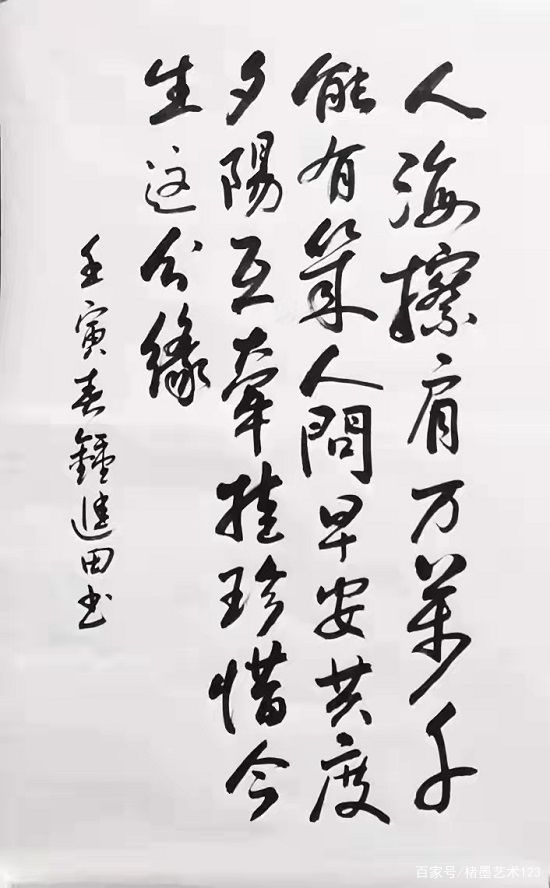 人海擦肩万萬千
能有幾人問早安共度
夕陽互牽挂珍惜今
生这分緣
壬寅春鍾進田书
百家号/楮墨艺术123